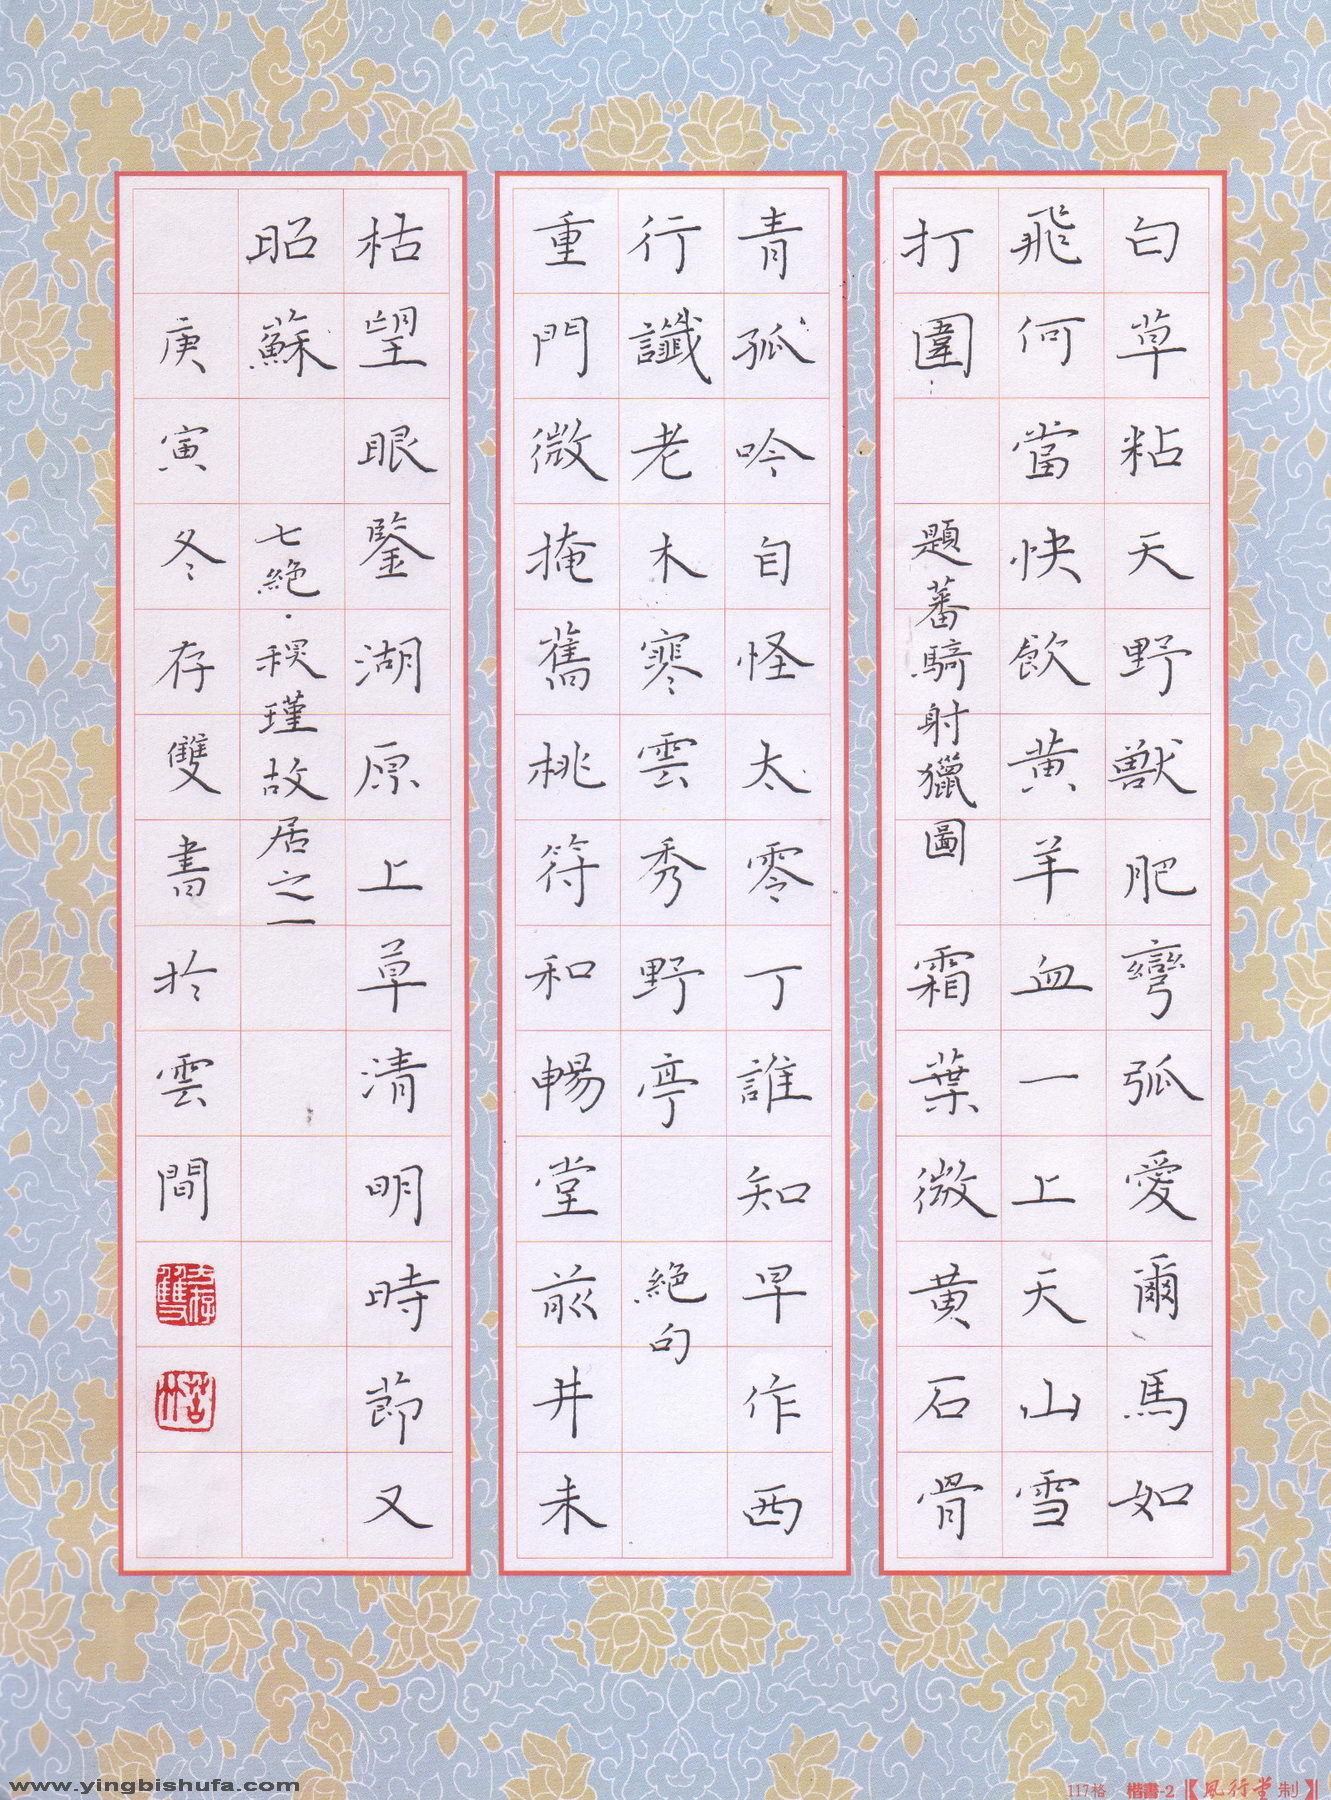 白草粘天野獸肥彎弧愛爾馬如
飛何當快飲黃羊血一上天山雪
打圍 題蕃騎射獵圖 霜葉微黃石骨
青孤吟自怪太零丁誰知早作西
行讖老木寒雲秀野亭 絕句
重門微掩舊桃符和暢堂前井未
枯望眼鑒湖原上草清明時節又
昭蘇 七絕·秋瑾故居之一
庚寅冬存雙書於雲間
www.yingbishufa.com
117格 楷書-2【風行堂制】